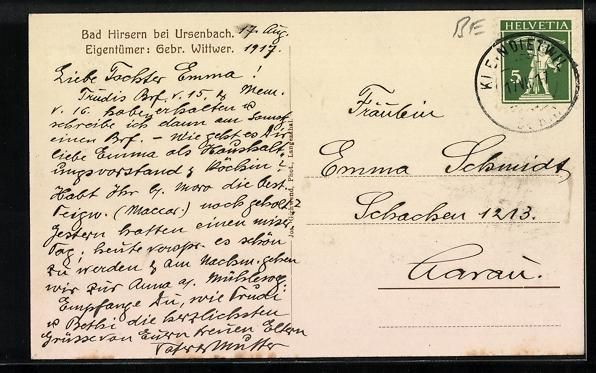 Bad Hirsern bei Ursenbach.
Eigentümer: Gebr. Wittwer.
17. Aug.
1917.
Liebe Tochter Emma!
Trudis Brf. v. 15. & Mem.
v. 16. haben erhalten &
schreibe ich dann am
einen Brf. – Wie geht es Dir
liebe Emma als Haushalt-
ungsvorstand & Köchin?
Habt Ihr die best.
Teigw. (Maccar.) noch geholt?
Gestern hatten einen
Tag, heute verspr. es schön
zu werden & am Nachm. gehen
wir zur Anna
Empfange Du, wie Trudi
& Bethi die herzlichsten
Grüsse von Euren treuen Eltern
Vater & Mutter
Phot., Langenthal
BE
HELVETIA
5
KLEINDIETWIL
Fräulein
Emma Schmidt
Schachen 1213.
Aarau.